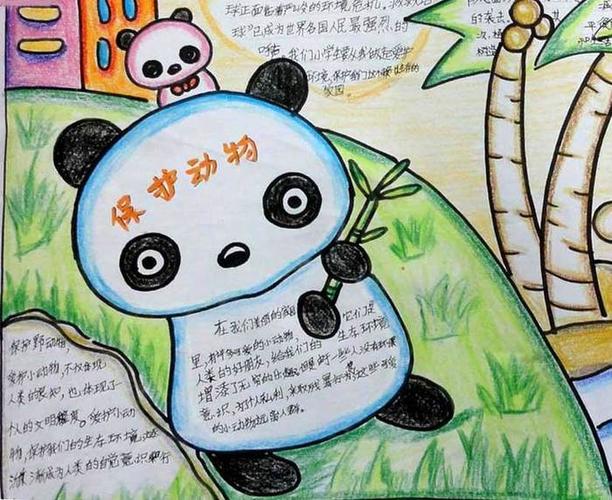 球正面临着严重的环境危机。"救救地
球"已成为世界各国人民最强烈的
呼声。我们小学生要从我做起爱护
环境,保护我们这个赖以生存的
家园。
的袭击。
保护动物
在我们美丽的家园
里,有许多可爱的小动物,它们是
人类的好朋友,给我们的生态环境
增添了无穷的乐趣。但是有一些人没有环境
意识,为了私利,采取残暴行
的小动物远离人群。
保护野动物,
爱护小动物,不仅体现
人类的良知,也体现了
人的文明程度。爱护小动
物,保护我们的生存环境
逐渐成为人类的自觉意识和行